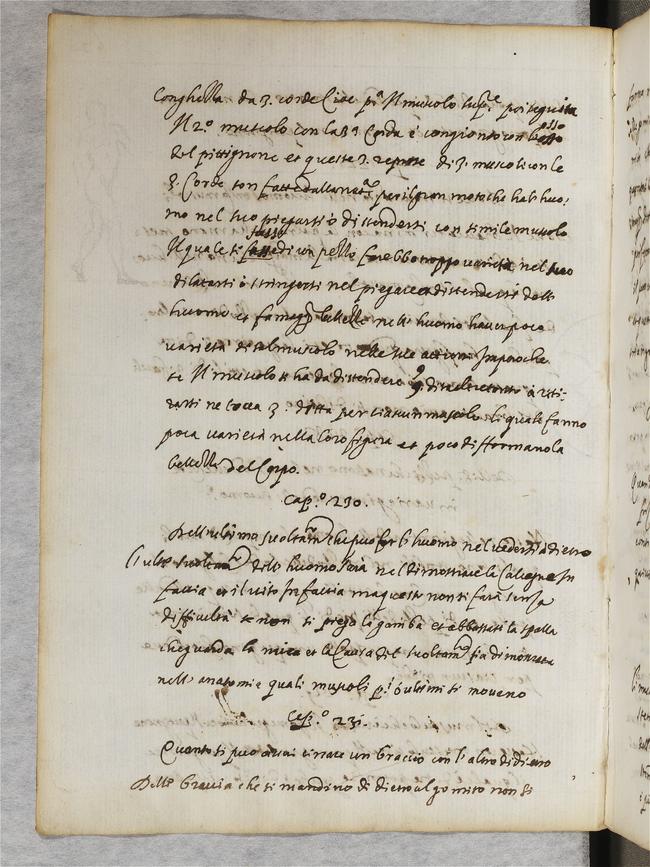 Conghella da 3. corde Cioe pª Il muscolo supre poi seguita
Il 2.º muscolo con la 3ª Corda è congionto con l'osso
del pittignone et queste 3. represe di 3. muscoli con le
3. Corde son fatte dalla natª per il gran moto che ha l'huo:
mo nel suo piegarsi ò distendersi con simile muscolo
Il quale se fusse di un pezzo farebbe troppo varietà nel suo
dilatarsi ò stringersi nel piegare et distendersi dell'
huomo et fa magor bellezza nell' huomo haver poca
varietà di tal muscolo nelle sue actioni Imperoche
se Il muscolo si ha da distendere 9. dita et altretanto à riti:
rarsi ne tocca 3. dita per ciascun muscolo li quale fanno
poca varietà nella loro figura et poco difformano la
bellezza del Corpo.
Cap.º 230.
Dell'ultimo svoltamto che puo far l'huomo nel vedersi à dietro
L'ulto svoltamto dell' huomo sarà nel dimostrare le Calcagne In
faccia et il viso In faccia ma questo non si farà senza
difficultà se non si piega la gamba et abbassasi la spalla
che guarda la nuca et la Causa del svoltamto fia dimonstrata
nell' anatomie quali muscoli pi ò ultimi si moveno
Cap.º 231.
Quanto si puo avicinare un braccio con l'altro di dietro
Delle braccia che si mandino di dietro al gomito non si